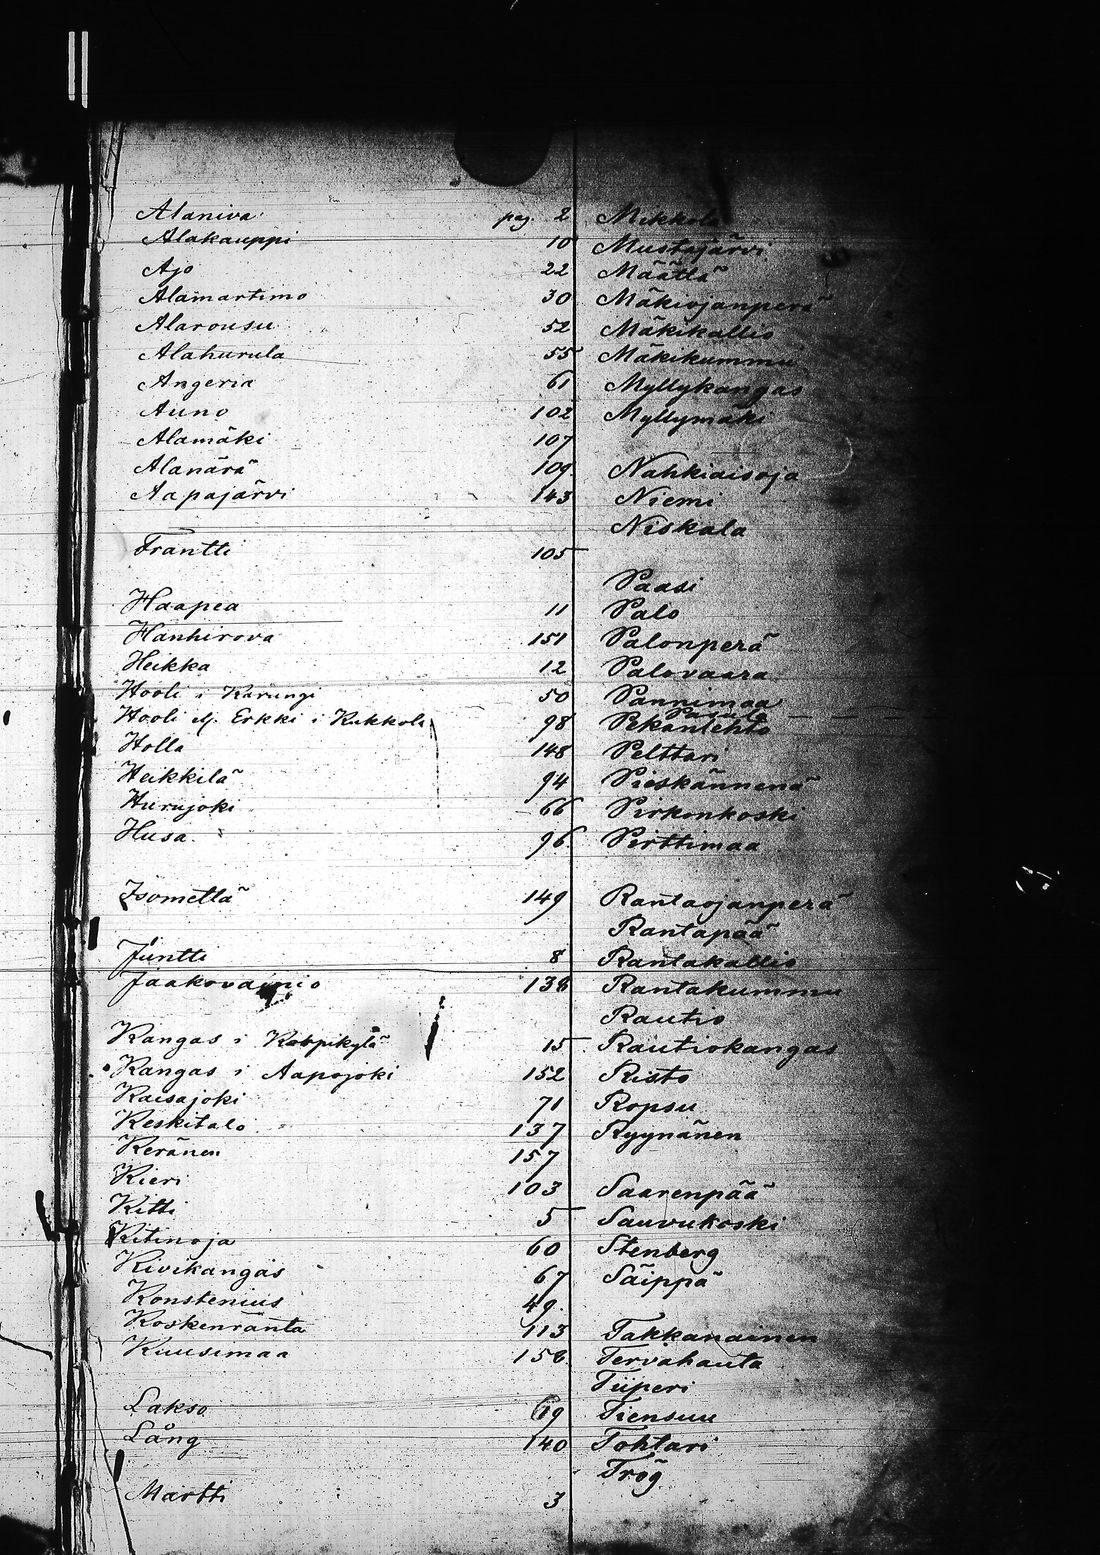 Alaniva pag. 2
Alakauppi 10
Ajo 22
Alamartimo 30
Alarousu 52
Alahurula 55
Angeria 61
Auno 102
Alamäki 107
Alanärä 109
Aapajärvi 143
Frantti 105
Haapea 11
Hanhirova 151
Heikka 12
Hooli i Karungi 50
Hooli Erkki i Kukkola 98
Holla 148
Heikkilä 94
Hurujoki 66
Husa 96
Isomettä 149
Juntti 8
Jaakovainio 138
Kangas i 15
Kangas i Aapojoki 152
Kaisajoki 71
Keskitalo 137
Keränen 157
Kieri 103
Kitti 5
Kitinoja 60
Kivikangas 67
Konstenius 49
Koskenranta 113
Kuusimaa 158
Lakso 69
Lång 140
Martti 3
Mikkola
Mustajärvi
Määttä
Mäkiojanperä
Mäkikallio
Mäkikummu
Myllykangas
Myllymäki
Nahkiaisoja
Niemi
Niskala
Paasi
Palo
Palonperä
Palovaara
Pannimaa
Pekanlehto
Pelttari
Pieskänniemi
Pirkonkoski
Perttimaa
Rantaojanperä
Rantapää
Rantakallio
Rantakummu
Rautio
Rautiokangas
Risto
Ropsu
Ryynänen
Saarenpää
Sauvukoski
Stenberg
Säippä
Takkanainen
Tervahauta
Tiiperi
Tiensuu
Tohtari
Trög